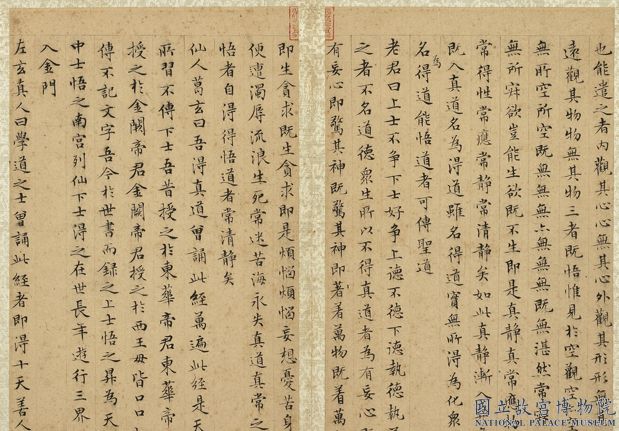 也能遣之者内觀其心心無其心外觀其形形無
遠觀其物物無其物三者既悟惟見於空觀空
無所空所空既無無無亦無無無既無湛然常
無所寂欲豈能生欲既不生即是真靜真常應
常得性常應常静常清静矣如此真静漸入
既入真道名為得道雖名得道實無所得為化衆
為名得道能悟道者可傳聖道
老君曰上士不争下士好争上德不德下德執德執
之者不名道德衆生所以不得真道者為有妄心
有妄心即驚其神既驚其神即著者萬物既着萬
即生貪求既生貪求即是煩惱煩惱妄想憂苦身
便遭濁辱流浪生死常迷苦海永失真道真常之
悟者自得得悟道者常清静矣
仙人葛玄曰吾得真道曾誦此經萬遍此經是天
所習不傳下士吾昔授之於東華帝君東華帝
授之於金闕帝君金闕帝君授之於西王母皆口口
傳不記文字吾今於世書而録之上士悟之昇為天
中士悟之南宫列仙下士得之在世長年遊行三界
入金門
左玄真人曰學道之士曾誦此經者即得十天善人
國立故宮博物院
NATIONAL PALACE MUSEUM